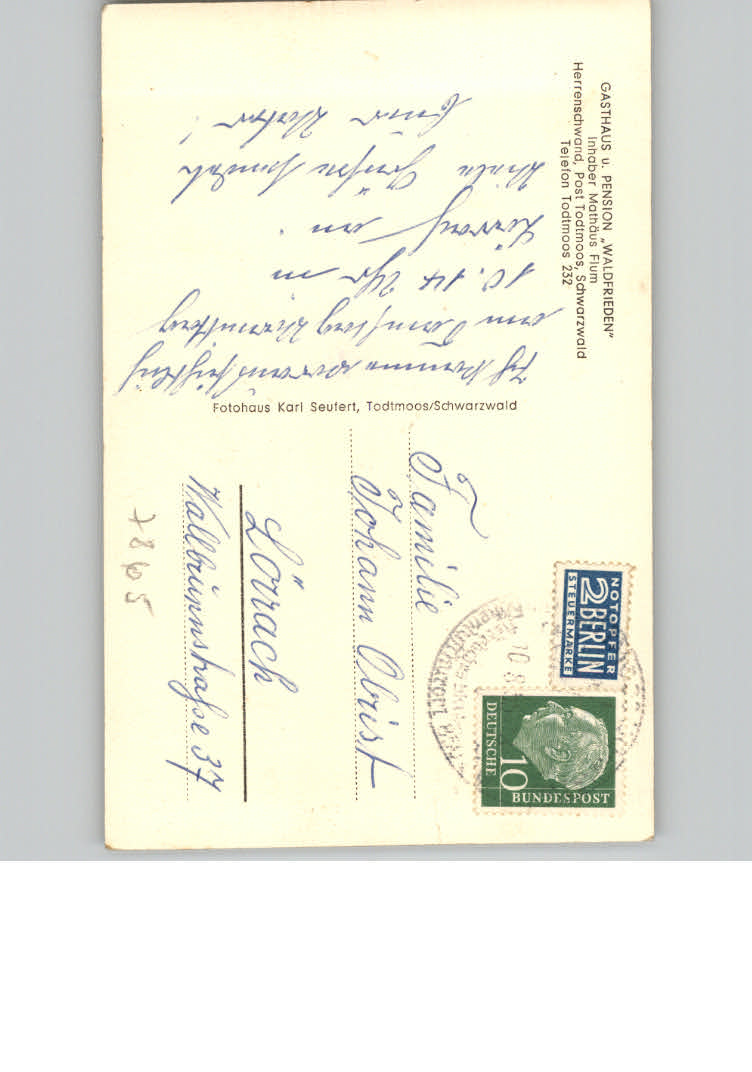 GASTHAUS u. PENSION „WALDFRIEDEN"
Inhaber Mathäus Flum
Herrenschwand, Post Todtmoos, Schwarzwald
Telefon Todtmoos 232
Ich komme voraussichtlich
am Samstag Vormittag
10.14 Uhr in
Lörrach an.
Viele Grüße sendet
Euer Vater!
Fotohaus Karl Seufert, Todtmoos/Schwarzwald
NOTOPFER
2 BERLIN
STEUERMARKE
DEUTSCHE
10
BUNDESPOST
Familie
Johann Obrist
Lörrach
Wallbrunnstraße 37